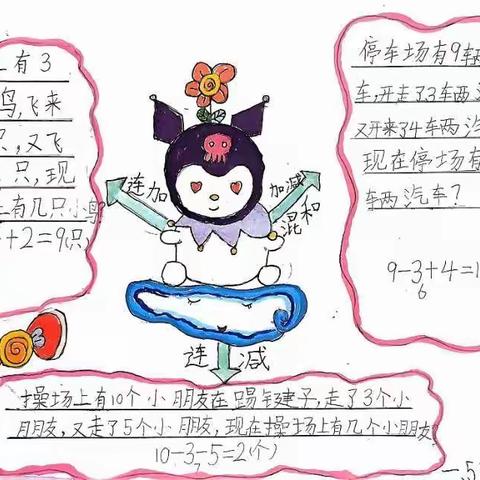 有3
鸟,飞来
只,又飞
只,现
上有几只小鸟
+2=9(只)
连加
加减
混和
连减
停车场有9辆
车,开走了3辆
又开来了4辆汽
现在停场有
辆汽车?
9-3+4=1
6
操场上有10个小朋友在踢毽子,走了3个小
朋友,又走了5个小朋友,现在操场上有几个小朋友
10-3-5=2(个)
7